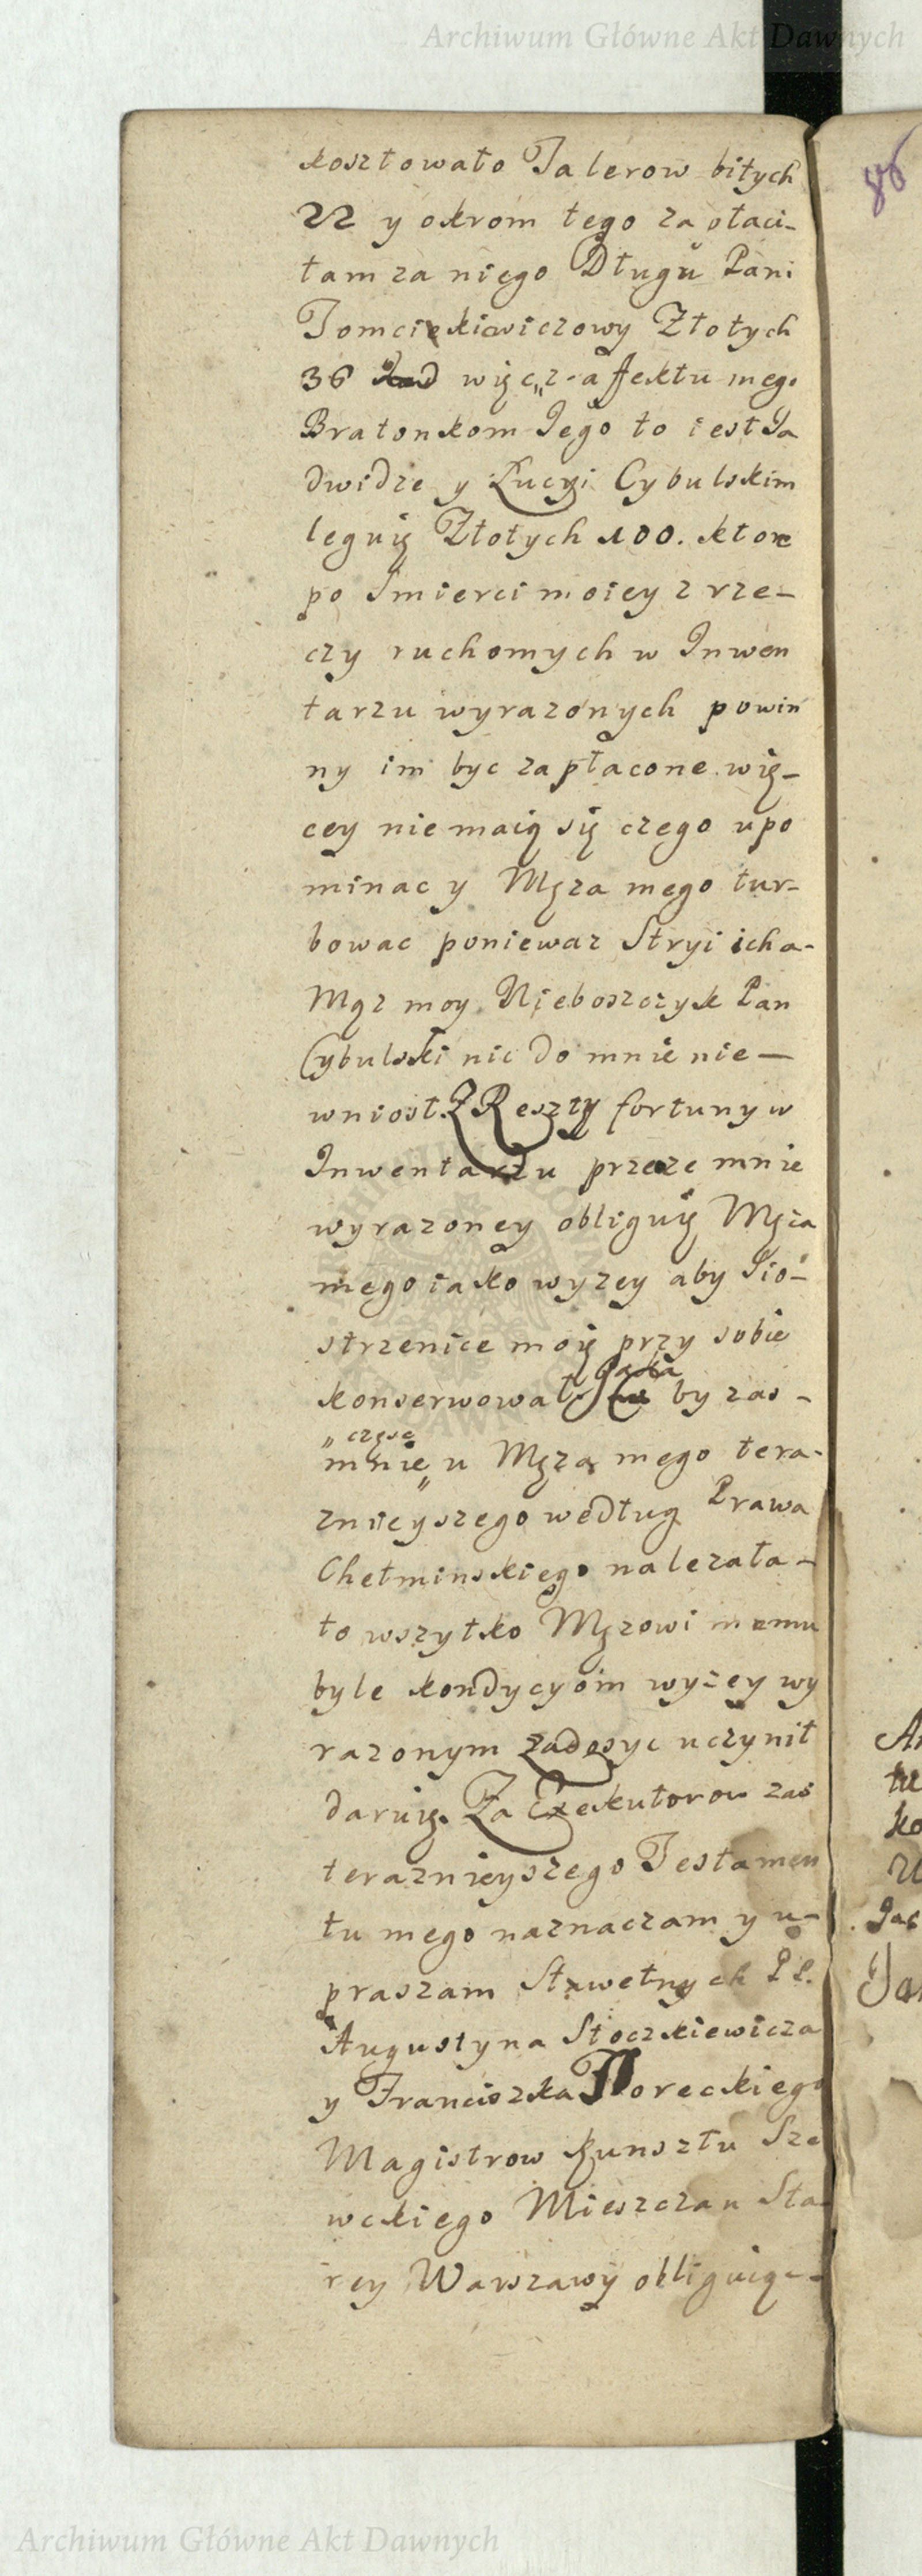 Archiwum Główne Akt Dawnych
86
kosztowało Talerow bitych
22 y okrom tego zapłaci-
łam za niego Długu Pani
Tomcikiewiczowy Złotych
36 więc z afektu mego
Bratonkom Jego to iest Ja
dwidze y Lucyi Cybulskim
leguię Złotych 100. ktore
po Smierci moiey z rze-
czy ruchomych w Inwen
tarzu wyrazonych powin
ny im byc zapłacone. wię-
cey nie maią się czego upo
minac y Męza mego tur-
bowac poniewaz Stryi icha-
Mąz moy Nieboszczyk Pan
Cybulski nic do mnie nie-
wniosł. Z Reszty fortuny w
Inwentarzu przeze mnie
wyrazoney obliguię Męża
mego iako wyzey aby Sio-
strzenice moię przy sobie
konserwował jaka by zas-
częsc
mnie u Męza mego tera-
znieyszego według Prawa
Chełminskiego nalezała-
to wszytko Męzowi memu
byle kondycyom wyżey wy
razonym zadosyc uczynił
daruię. Za Exekutorow zas
teraznieyszego Testamen
tu mego naznaczam y u-
praszam Sławetnych PP.
Augustyna Stoczkiewicza
y Franciszka Noreckiego
Magistrow Kunsztu Sze
wckiego Mieszczan Sta-
rey Warszawy obliguiąc-
Archiwum Główne Akt Dawnych